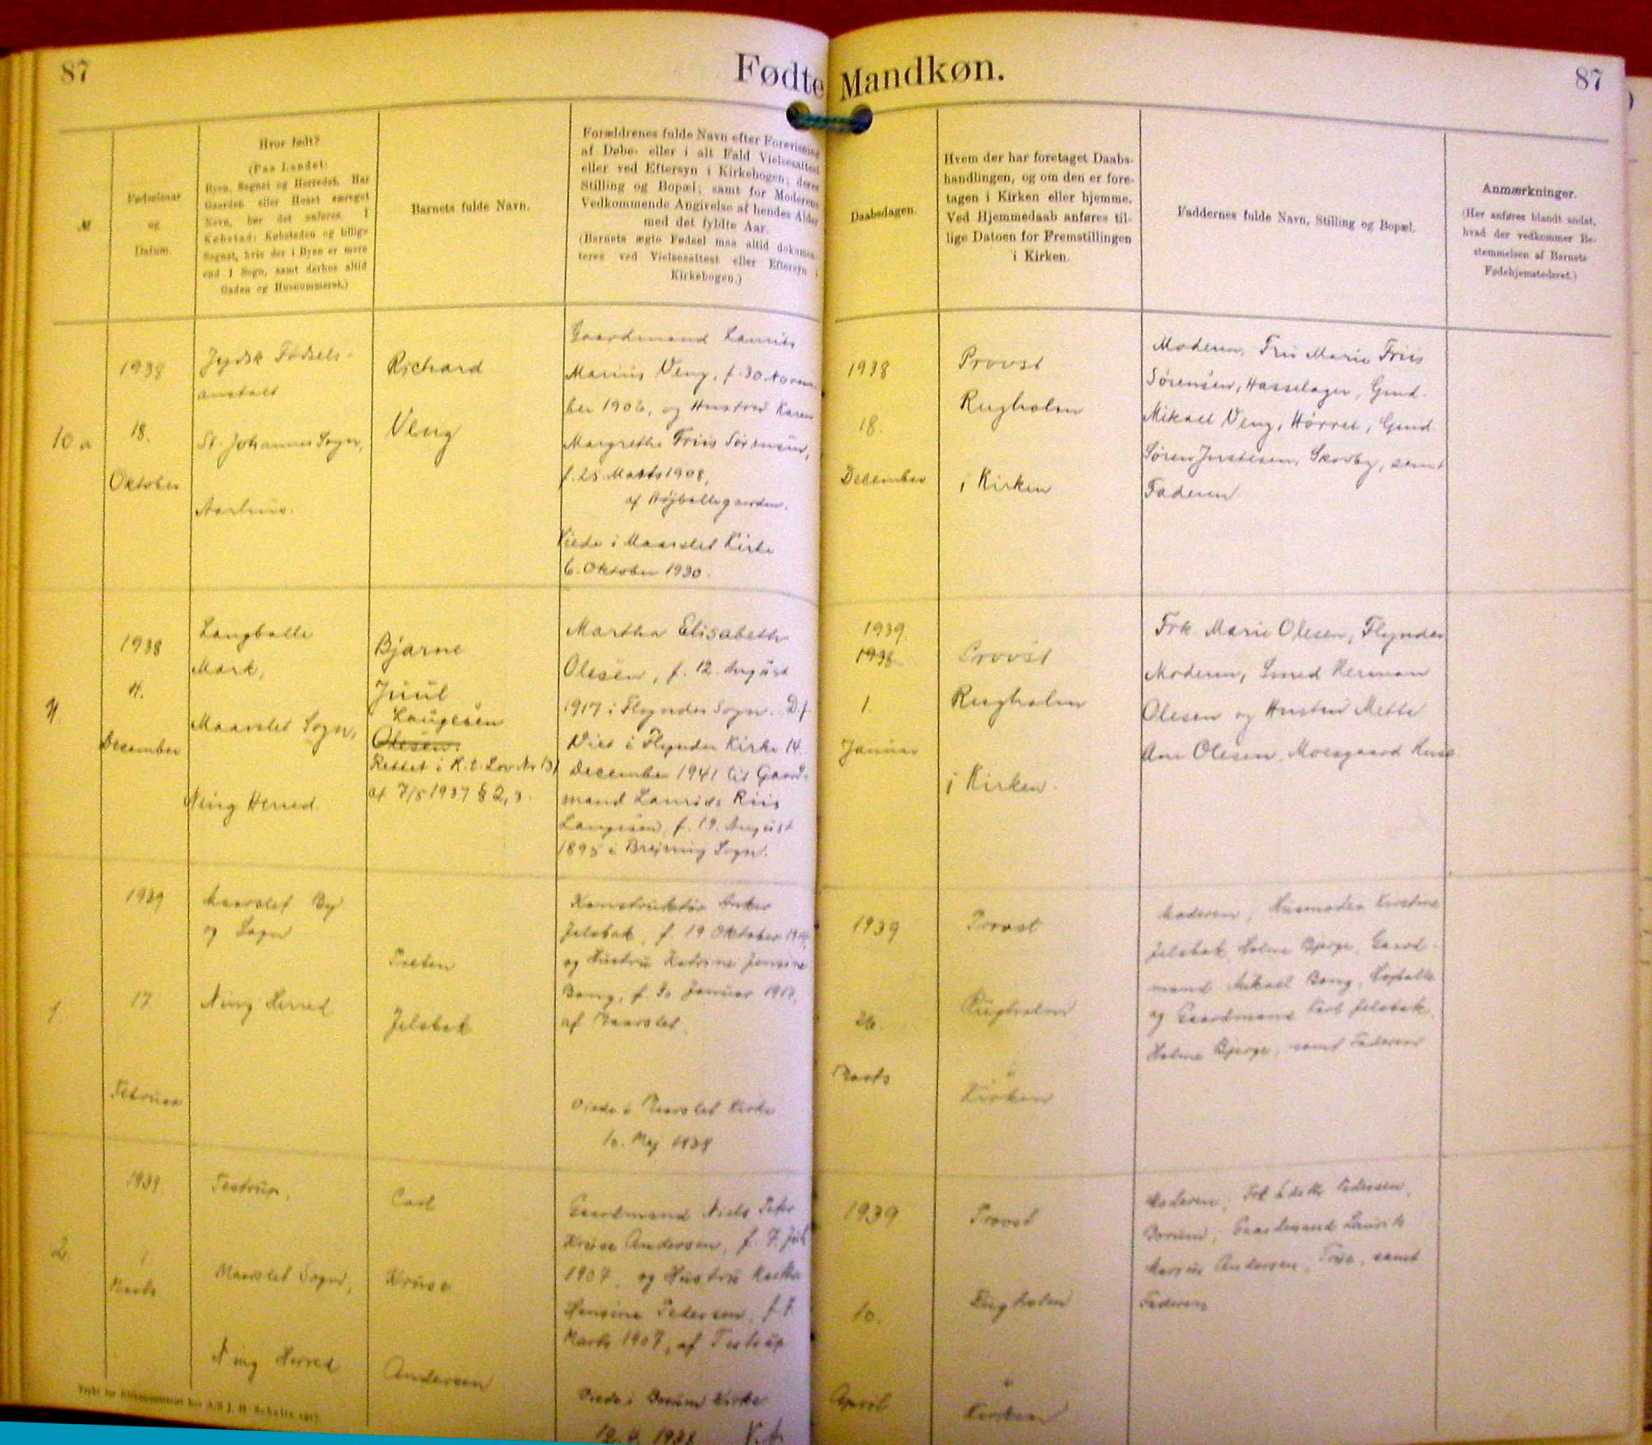 87
Fødte Mandkøn.
87
№
Fødselsaar
og
Datum.
Hvor født?
(Paa Landet:
Byen, Sognet og Herredet. Har
Gaarden eller Huset særeget
Navn, bør det anføres. I
Købstad: Købstaden og tillige
Sognet, hvis der i Byen er mere
end 1 Sogn, samt derhos altid
Gaden og Husnummeret.)
Barnets fulde Navn.
Forældrenes fulde Navn efter Forevisning
af Døbe- eller i alt Fald Vielsesattest
eller ved Eftersyn i Kirkebogen; deres
Stilling og Bopæl; samt for Moderens
Vedkommende Angivelse af hendes Alder
med det fyldte Aar.
(Barnets ægte Fødsel maa altid dokumen-
teres ved Vielsesattest eller Eftersyn i
Kirkebogen.)
Daabsdagen.
Hvem der har foretaget Daabs-
handlingen, og om den er fore-
tagen i Kirken eller hjemme.
Ved Hjemmedaab anføres til-
lige Datoen for Fremstillingen
i Kirken.
Faddernes fulde Navn, Stilling og Bopæl.
Anmærkninger.
(Her anføres blandt andet,
hvad der vedkommer Be-
stemmelsen af Barnets
Fødehjemstedsret.)
10 a
1938
18.
Oktober
Jydsk Fødsels-
anstalt
St. Johannes Sogn,
Aarhus.
Richard
Veng
Gaardmand Laurits
Marius Veng, f. 30 Novem-
ber 1906, og Hustru Karen
Margrethe Friis Sørensen,
f. 25 Marts 1908,
af Højballegaarden.
Viede i Maarslet Kirke
6. Oktober 1930.
1938
18.
December
Provst
Rugholm
i Kirken
Moderen, Fru Marie Friis
Sørensen, Hasselager, Gmd.
Mikael Veng, Hørret, Gmd
Søren Justesen, Skovby, samt
Faderen
11
1938
4.
December
Langballe
Mark,
Maarslet Sogn,
Ning Herred.
Bjarne
Juul
Laugesen
Olesen.
Rettet i H. t. Lov Nr 131
af 7/5 1937 § 2, 3.
Martha Elisabeth
Olesen, f. 12. August
1917 i Flynder Sogn.
Viet i Flynder Kirke 14.
December 1941 til Gaard-
mand Laurids Riis
Laugesen, f. 19. August
1895 i Brejning Sogn.
1939.
1938
1.
Januar
Provst
Rugholm
i Kirken.
Frk. Marie Olesen, Flynder
Moderen, Smed Herman
Olesen og Hustru Mette
Ane Olesen, Moesgaard Huse
1
1939
17
Februar
Maarslet By
og Sogn
Ning Herred
Preben
Jelsbak
Konstruktør Anker
Jelsbak, f. 19 Oktober
og Hustru Katrine Jensine
Bang, f. Januar
af Maarslet.
Viede i Maarslet Kirke
10. Maj 1938
1939
26.
Marts
Provst
Rugholm
i
Kirken
Moderen, Husmoder Kirstine
Jelsbak, Holme Bjerge, Gaard-
mand Mikael Bang, Højballe
og Gaardmand Carl Jelsbak,
Holme Bjerge, samt Faderen
2
1939
1
Marts
Testrup,
Maarslet Sogn,
Ning Herred
Carl
Kruse
Andersen
Gaardmand Niels Peter
Kruse Andersen, f. 7. Juli
1907, og Hustru
Hansine Pedersen, f. 7.
Marts 1907, af Testrup
Viede i Borum Kirke
1939
10.
April
Provst
Rugholm
i
Kirken
Moderen, Frk Edith Pedersen,
Borum, Gaardmand Laurits
Marius Andersen, Trige, samt
Faderen